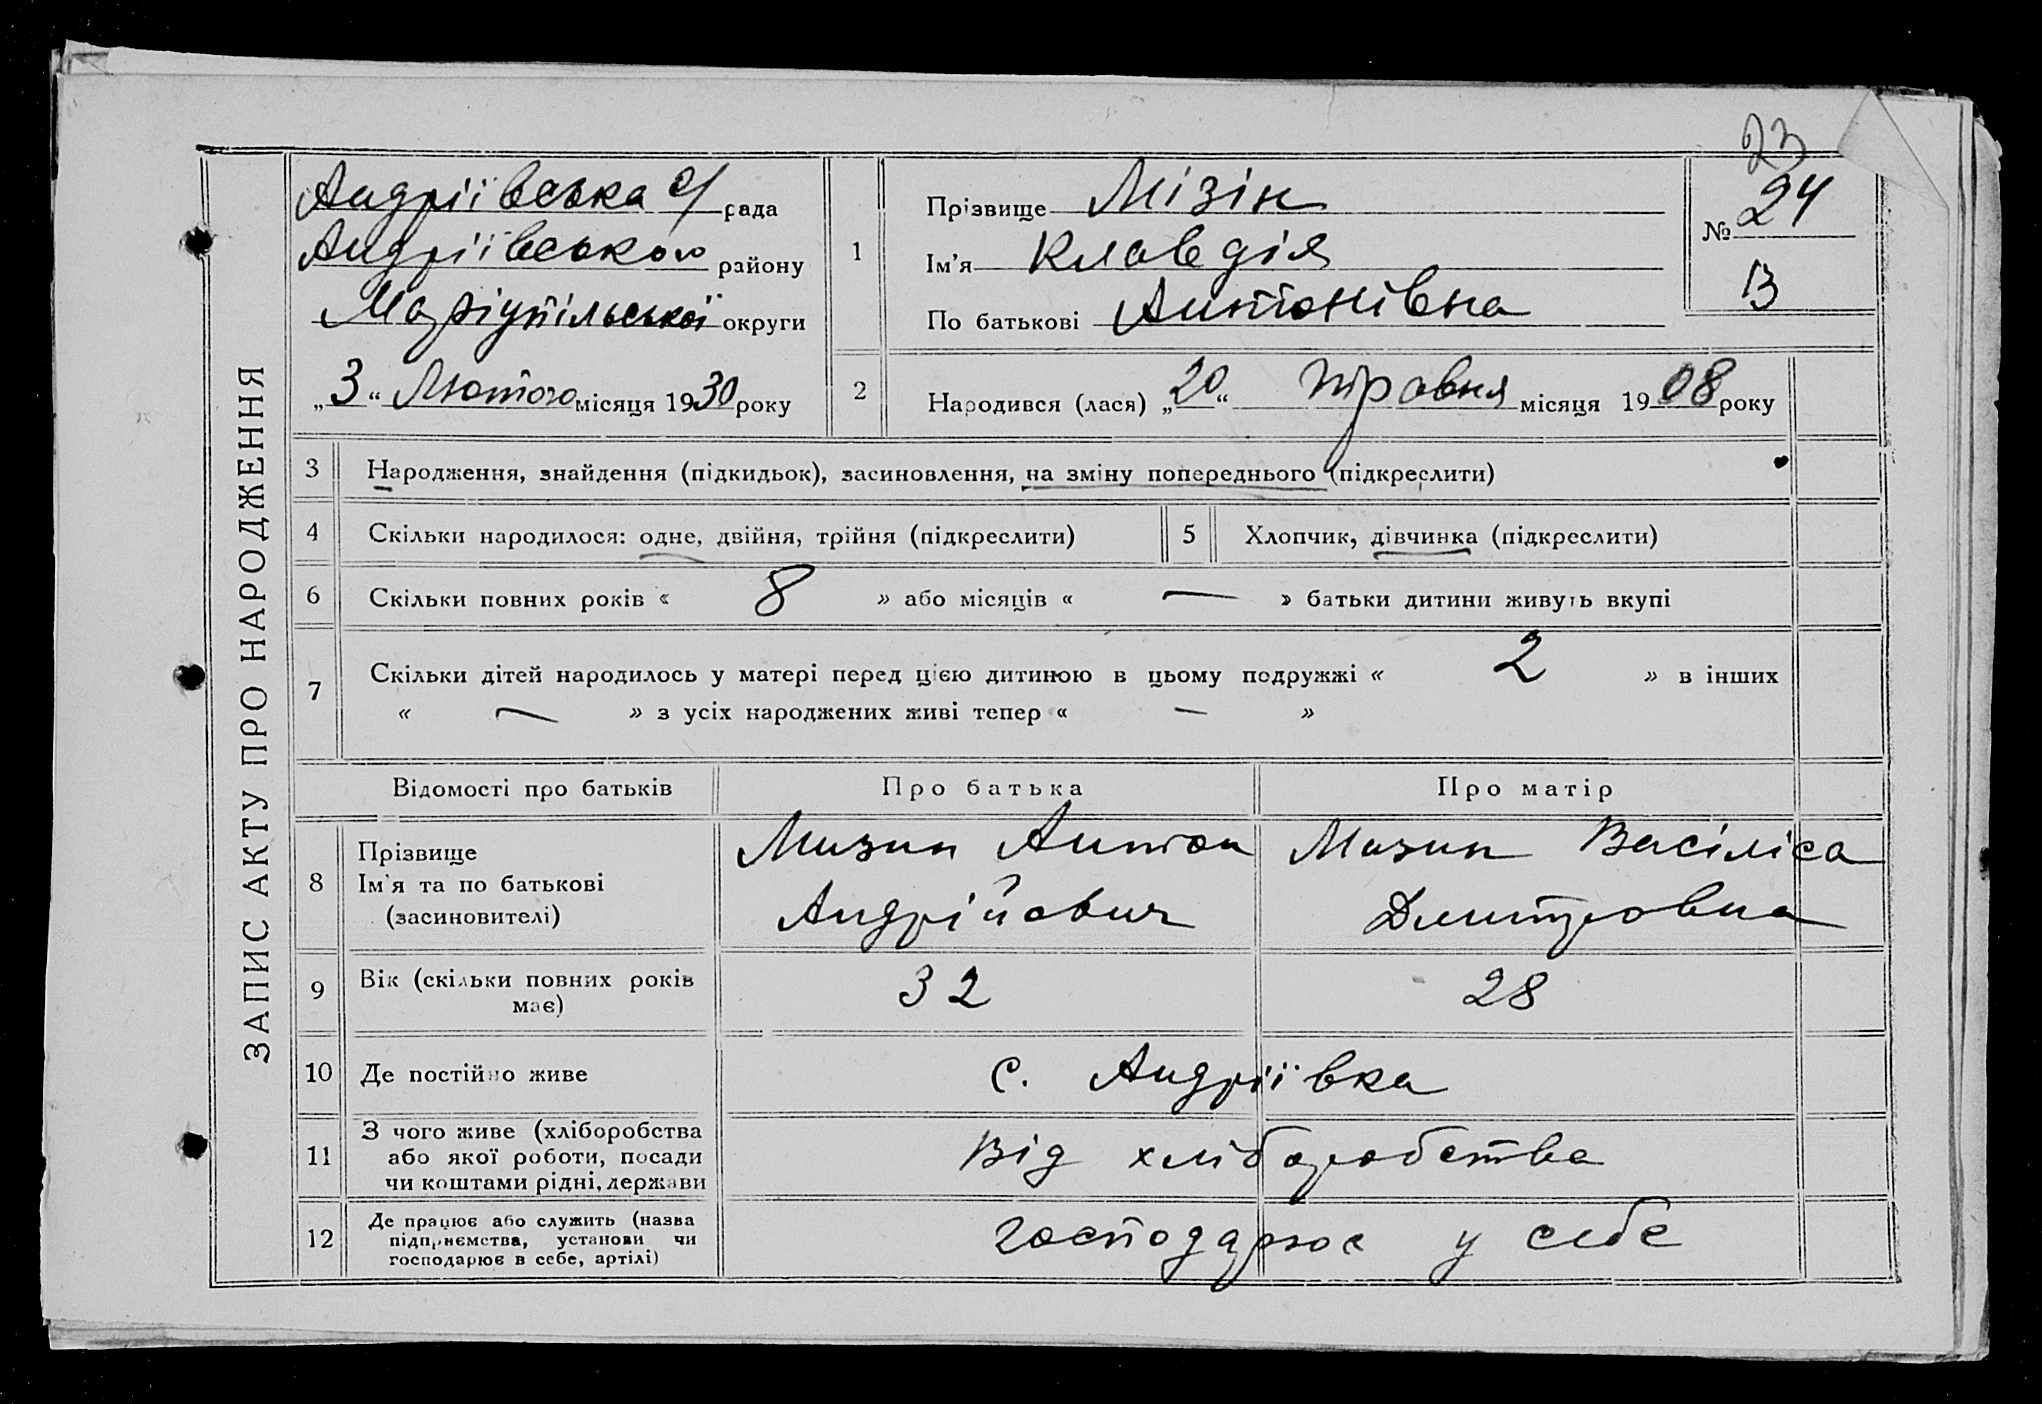 23
ЗАПИС АКТУ ПРО НАРОДЖЕННЯ
Андріівська с/рада
Андріівського району
Маріупільської округи
„3“ Лютого місяця 1930 року
1
Прізвище Мізін
Ім'я Клавдія
По батькові Антонівна
№ 24
В
2 Народився (лася) „20“ травня місяця 1908 року
3 Народження, знайдення (підкидьок), засиновлення, на зміну попереднього (підкреслити)
4 Скільки народилося: одне, двійня, трійня (підкреслити) 5 Хлопчик, дівчинка (підкреслити)
6 Скільки повних років « 8 » або місяців « — » батьки дитини живуть вкупі
7 Скільки дітей народилось у матері перед цією дитиною в цьому подружжі « 2 » в інших
« — » з усіх народжених живі тепер « — »
Відомості про батьків Про батька Про матір
8 Прізвище
Ім'я та по батькові
(засиновителі)
Мизин Антон
Андрійович
Мизин Васіліса
Дмитровна
9 Вік (скільки повних років
має)
32 28
10 Де постійно живе с. Андріївка
11 З чого живе (хліборобства
або якої роботи, посади
чи коштами рідні, держави
Від хліборобства
12 Де працює або служить (назва
підприємства, установи чи
господарює в себе, артілі)
господарює у себе